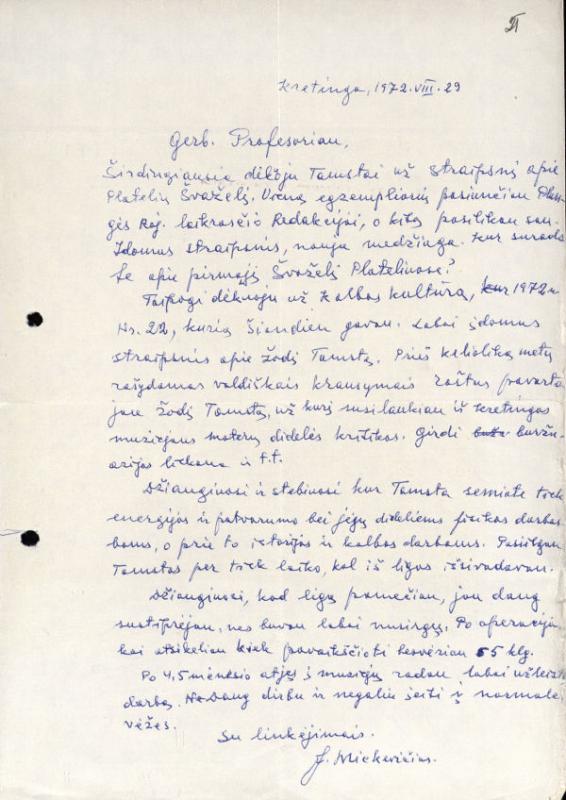 Kretinga, 1972.VIII.29
Gerb. Profesoriau,
Širdingiausia dėkoju Tamstai už straipsnį apie
Platelių Švaželį. Vieną egzempliorių pasiunčiau Plun-
gės Raj. laikraščio Redakcijai, o kitą pasilikau sau.
Įdomus straipsnis, nauja medžiaga. Kur surado
te apie pirmąjį Švažėlį Plateliuose?
Taipogi dėkoju už Kalbos kultūrą, 1972 m
Nr. 22, kurią šiandien gavau. Labai įdomus
straipsnis apie žodį Tamsta. Prieš keliolika metų
rašydamas valdiškais klausymais raštus pavarto
jau žodį Tamsta, už kurį susilaukiau iš Kretingos
muziejaus moterų didelės kritikos. Girdi buržu-
azijos liekana ir t.t.
Džiaugiuosi ir stebiuosi kur Tamsta semiate tiek
energijos ir patvarumo bei jėgų dideliems fizikos darba
bams, o prie to istorijos ir kalbos darbams. Pasiilgau
Tamstos per tiek laiko, kol iš ligos išsivadavau.
Džiaugiuosi, kad ligą pamečiau, jau daug
sustiprėjau, nes buvau labai nusirgęs. Po operacijų
kai atsikėliau kiek pavaikščioti besvėriau 55 klg.
Po 4,5 mėnesio atėjęs į muziejų radau labai užleistą
darbą. Daug dirbu ir negaliu įeiti į normales
vėžes.
Su linkėjimais.
J. Mickevičius.